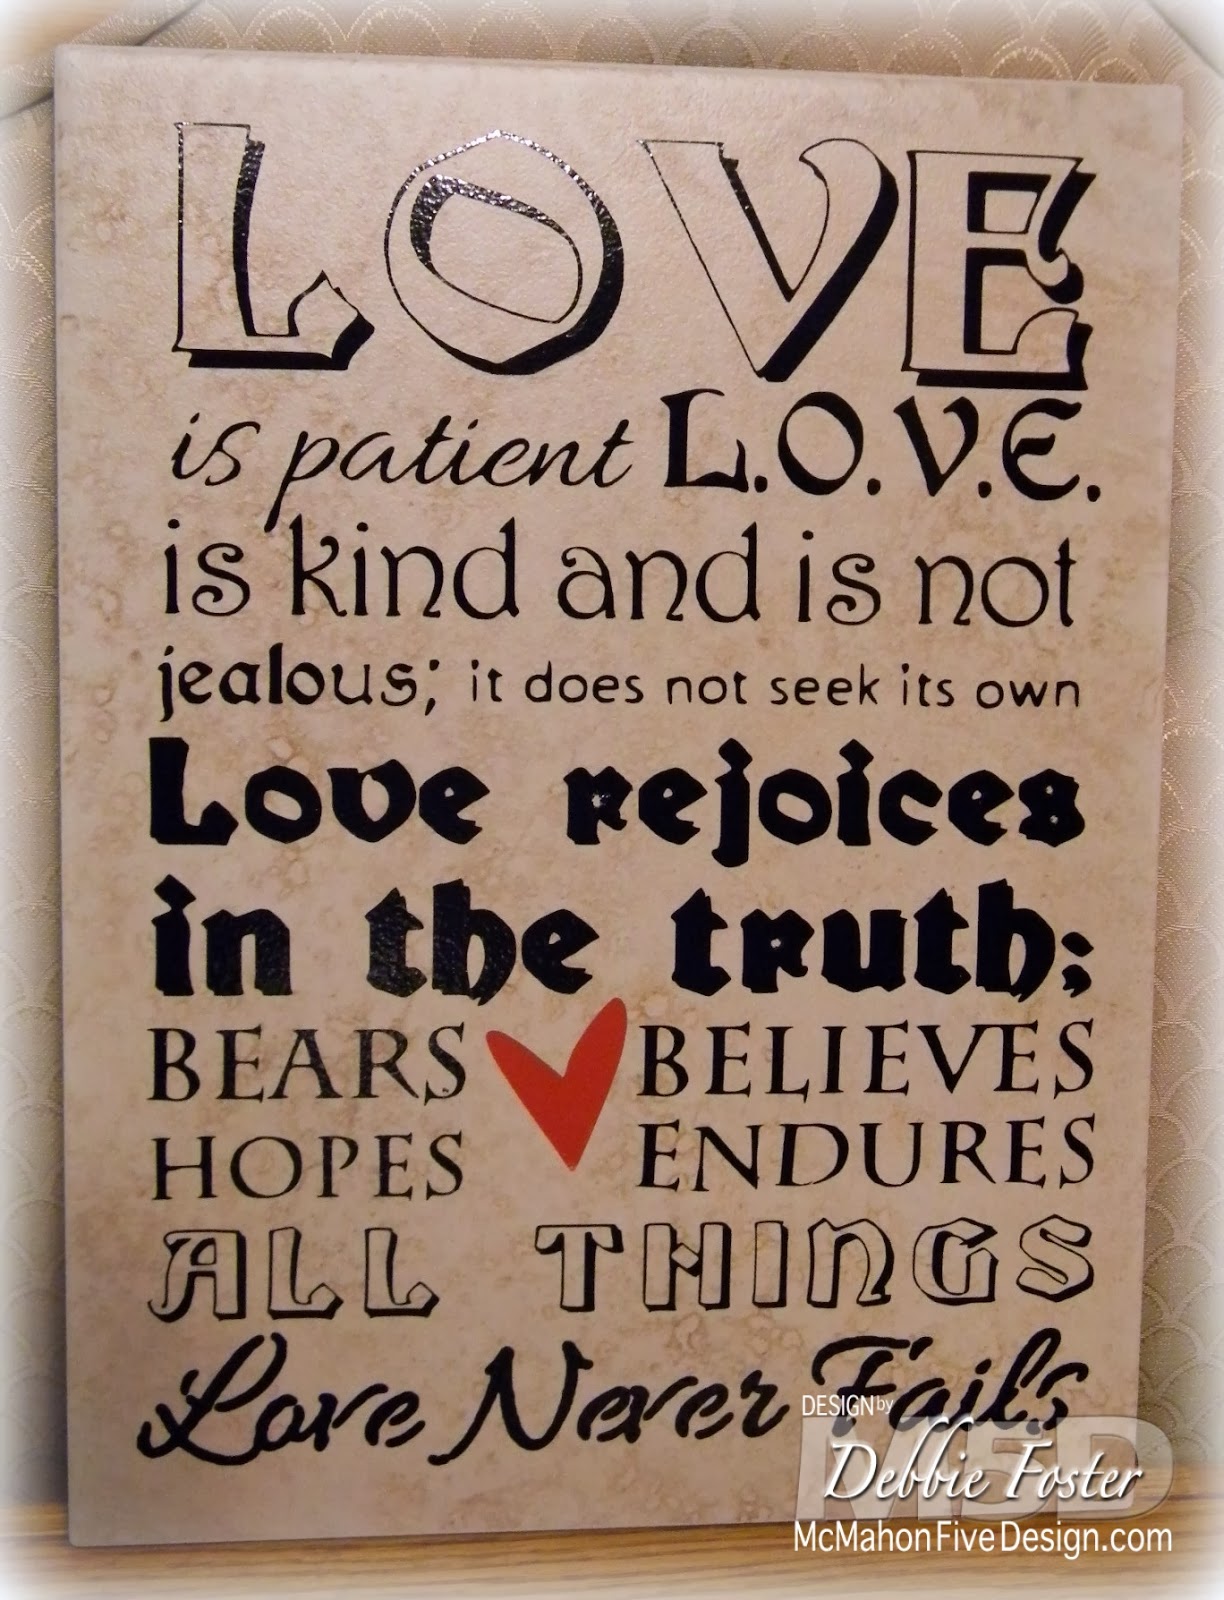 LOVE
is patient L.O.V.E.
is kind and is not
jealous; it does not seek its own
Love rejoices
in the truth;
BEARS BELIEVES
HOPES ENDURES
ALL THINGS
Love Never Fails
DESIGN by
M5D
Debbie Foster
McMahonFiveDesign.com